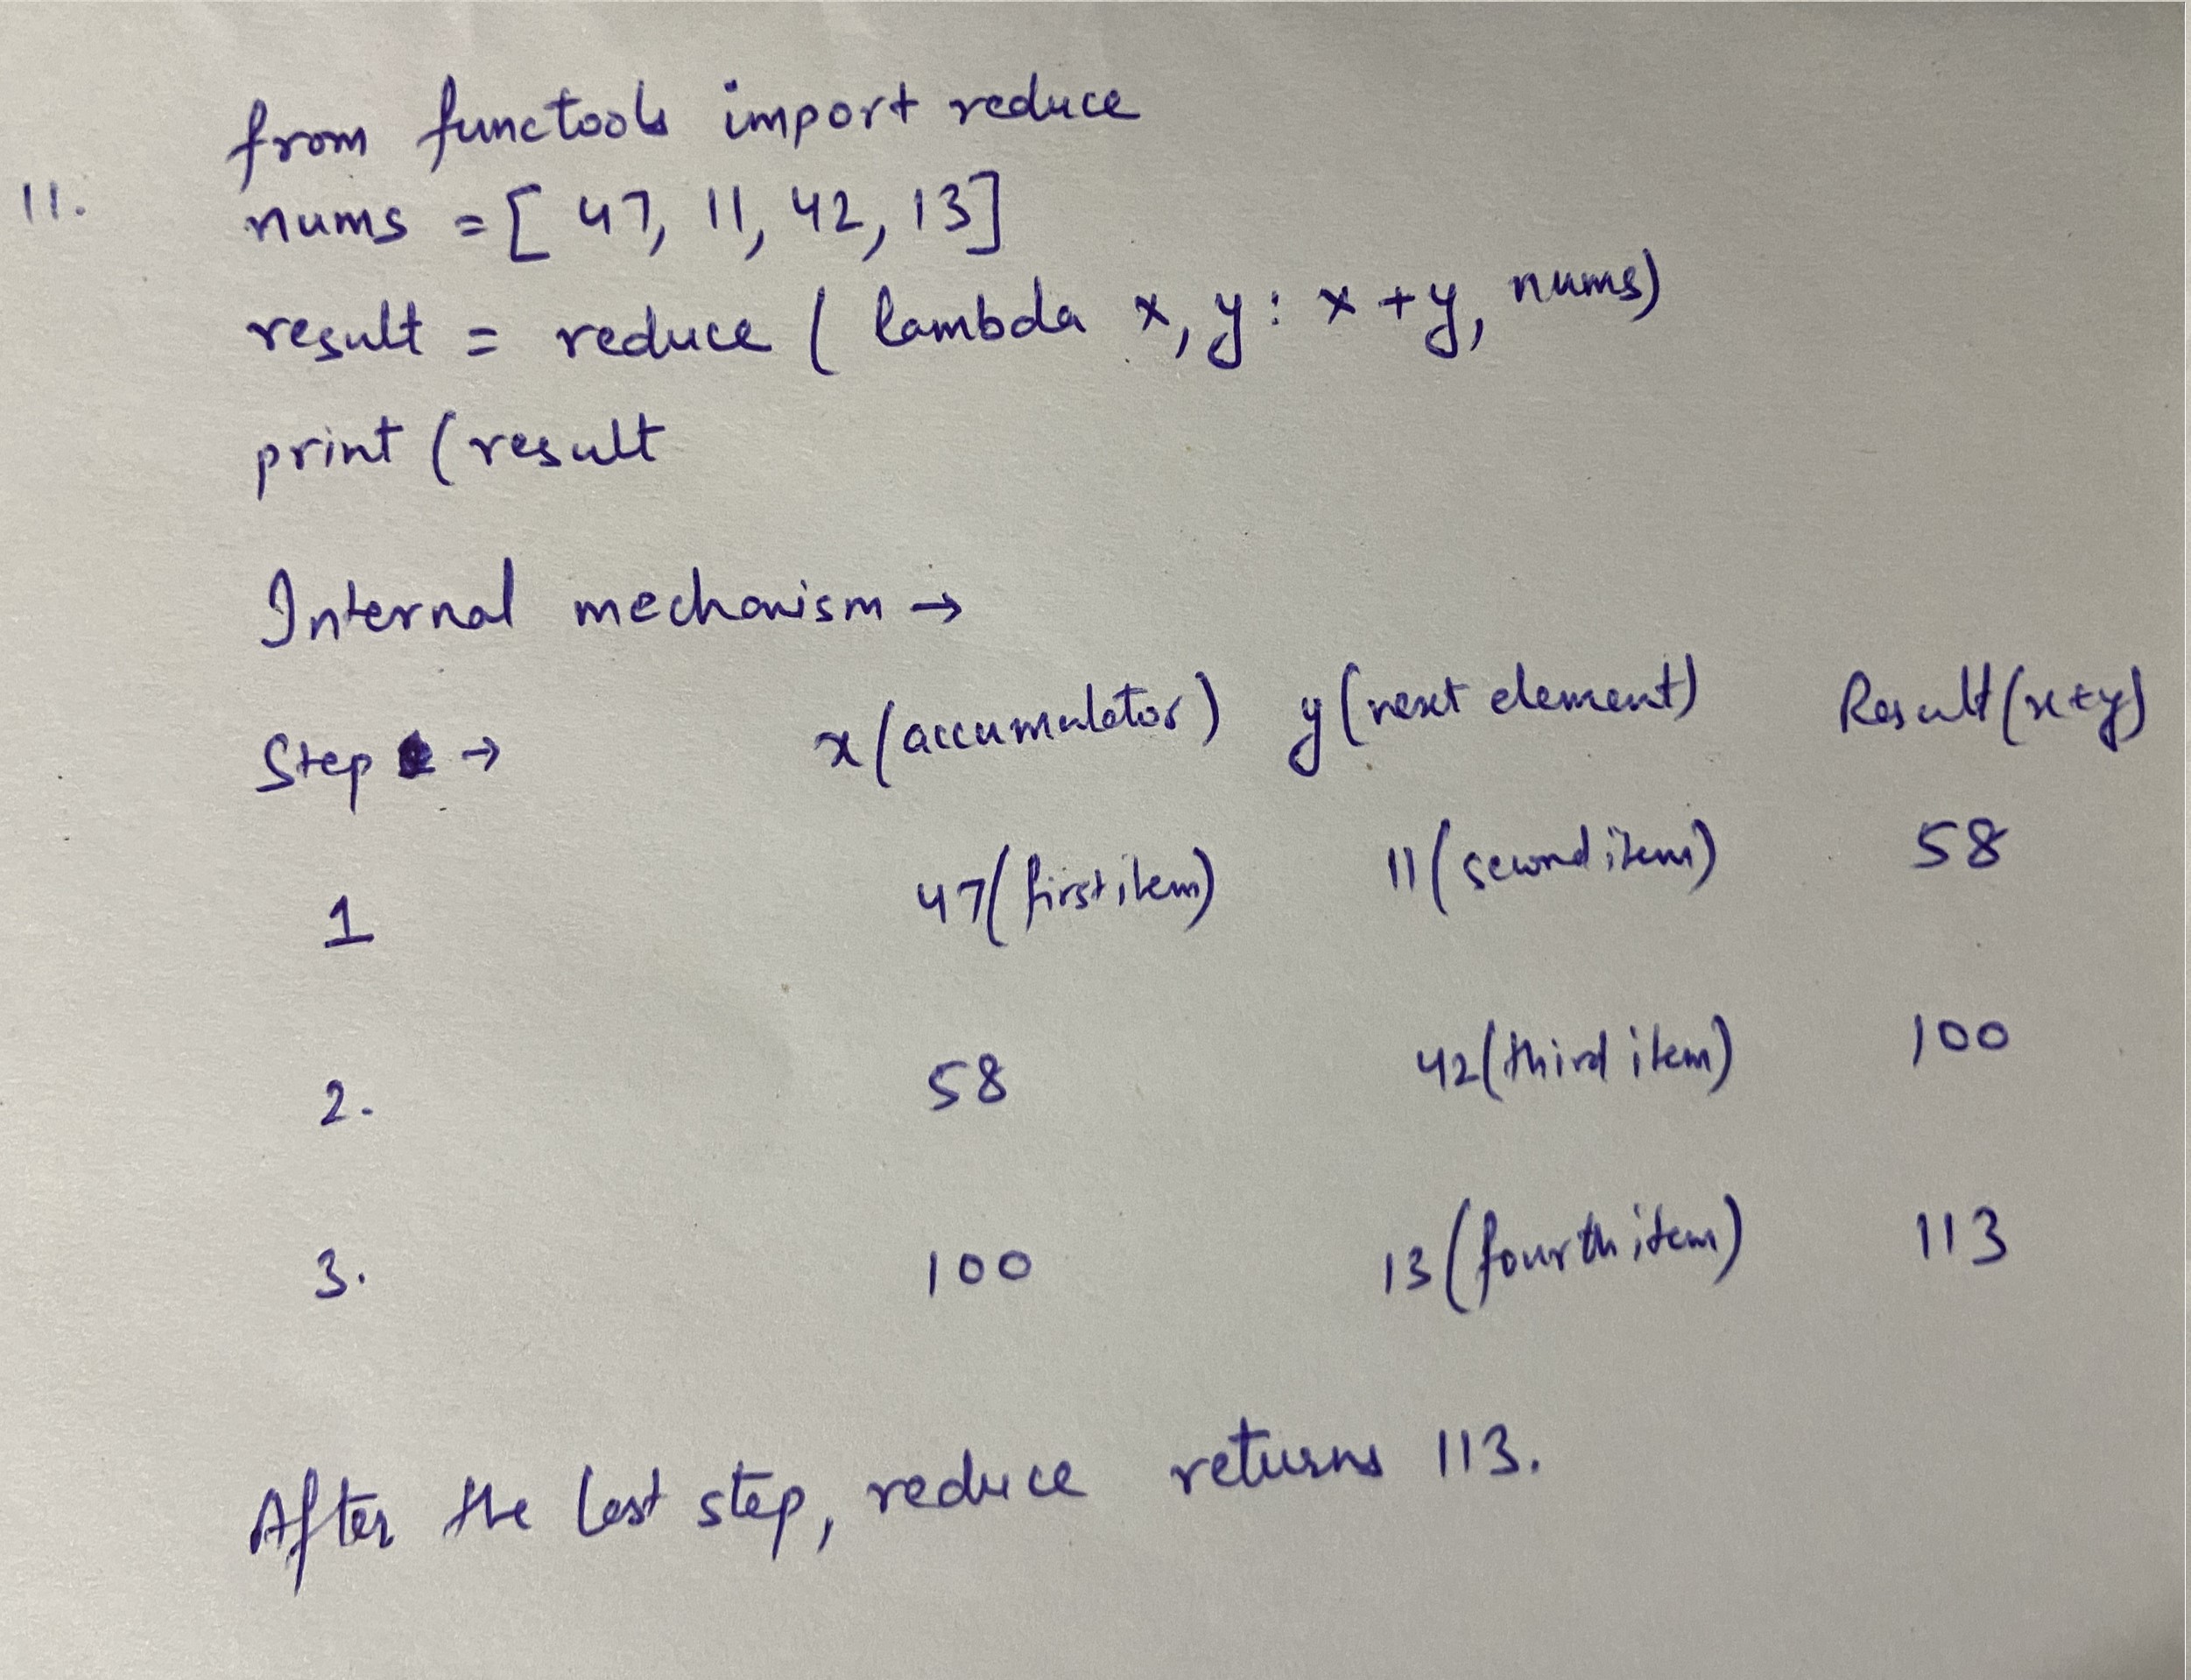 from functools import reduce
11. nums = [ 47, 11, 42, 13]
result = reduce ( lambda x, y : x + y, nums)
print (result
Internal mechanism →
Step → x (accumulator) y (next element) Result (x+y)
1 47 (first item) 11 (second item) 58
2. 58 42 (third item) 100
3. 100 13 (fourth item) 113
After the last step, reduce returns 113.